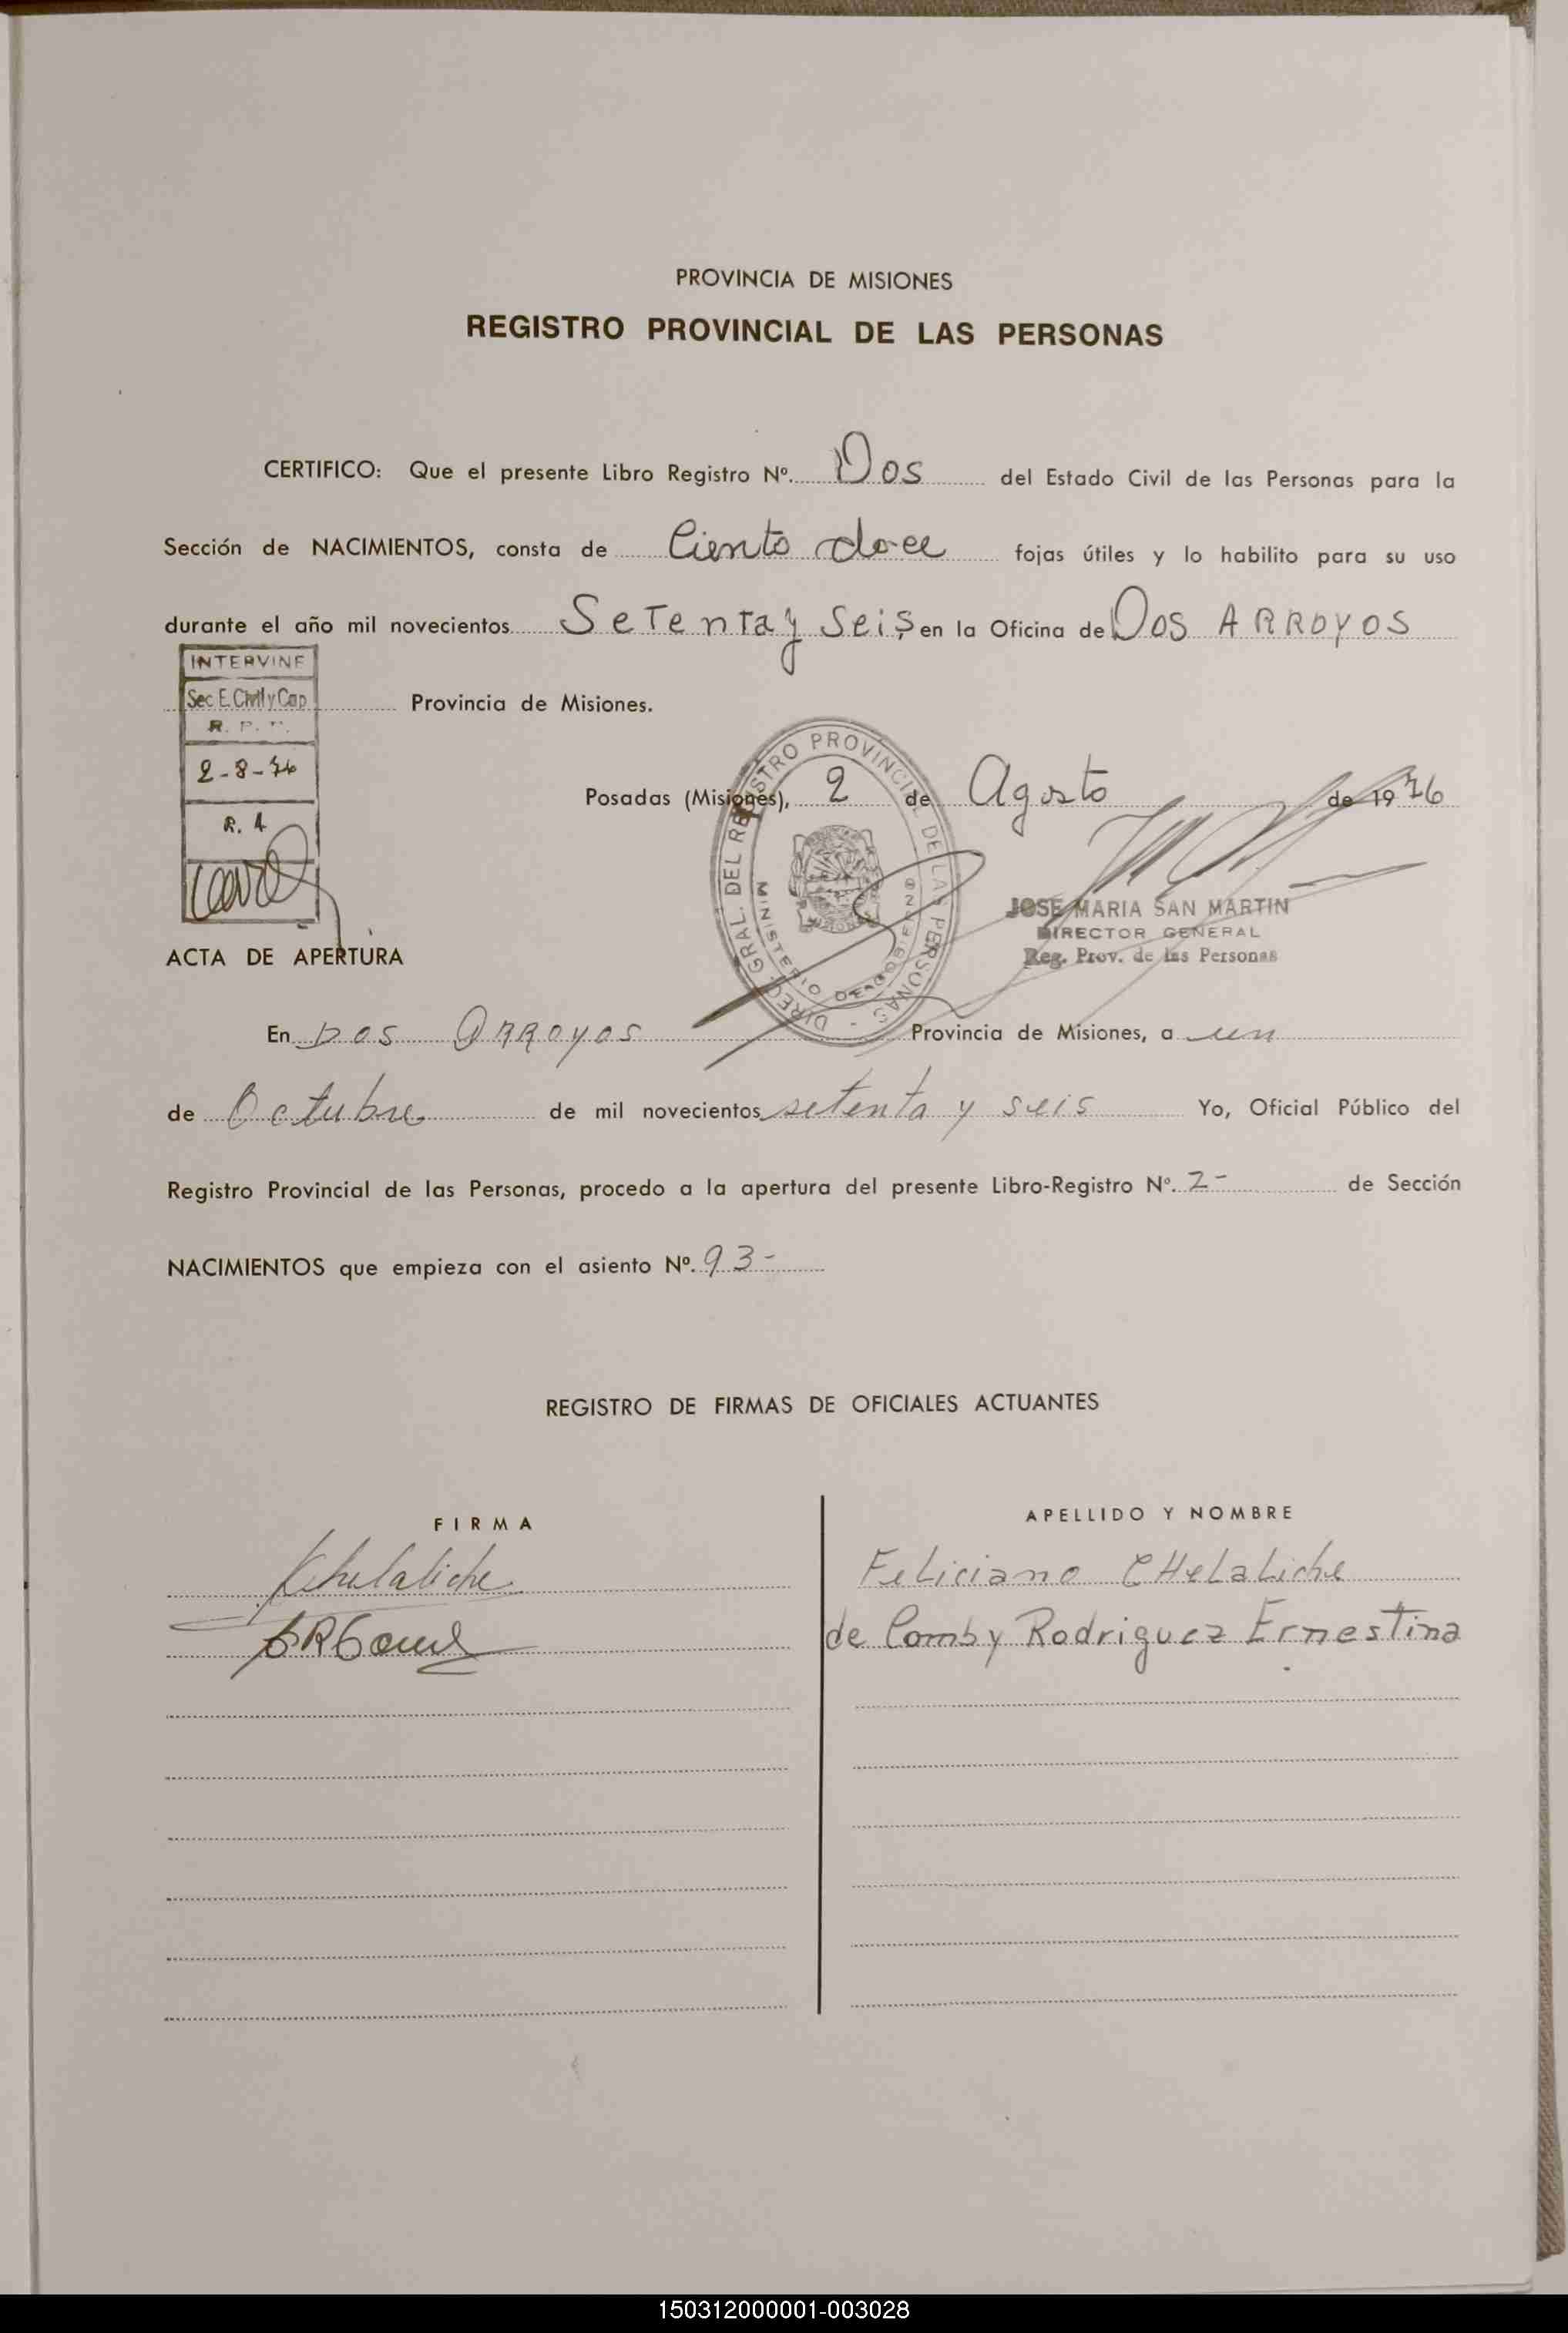 PROVINCIA DE MISIONES
REGISTRO PROVINCIAL DE LAS PERSONAS
CERTIFICO: Que el presente Libro Registro Nº. Dos del Estado Civil de las Personas para la
Sección de NACIMIENTOS, consta de Ciento doce fojas útiles y lo habilito para su uso
durante el año mil novecientos Setenta y Seis en la Oficina de Dos ARROYOS
Provincia de Misiones.
INTERVINE
Sec E. Civil y Cap
R. P. P.
2-8-76
R. 4
Posadas (Misiones), 2 de Agosto de 1976
DIREC. GRAL. DEL REGISTRO PROVINCIAL DE LAS PERSONAS -
MINISTERIO DE GOBIERNO
JOSE MARIA SAN MARTIN
DIRECTOR GENERAL
Reg. Prov. de las Personas
ACTA DE APERTURA
En DOS ARROYOS Provincia de Misiones, a un
de Octubre de mil novecientos setenta y seis Yo, Oficial Público del
Registro Provincial de las Personas, procedo a la apertura del presente Libro-Registro Nº. 2- de Sección
NACIMIENTOS que empieza con el asiento Nº. 93-
REGISTRO DE FIRMAS DE OFICIALES ACTUANTES
FIRMA
APELLIDO Y NOMBRE
Feliciano CHeLaLiche
de Comby Rodriguez Ernestina
150312000001-003028